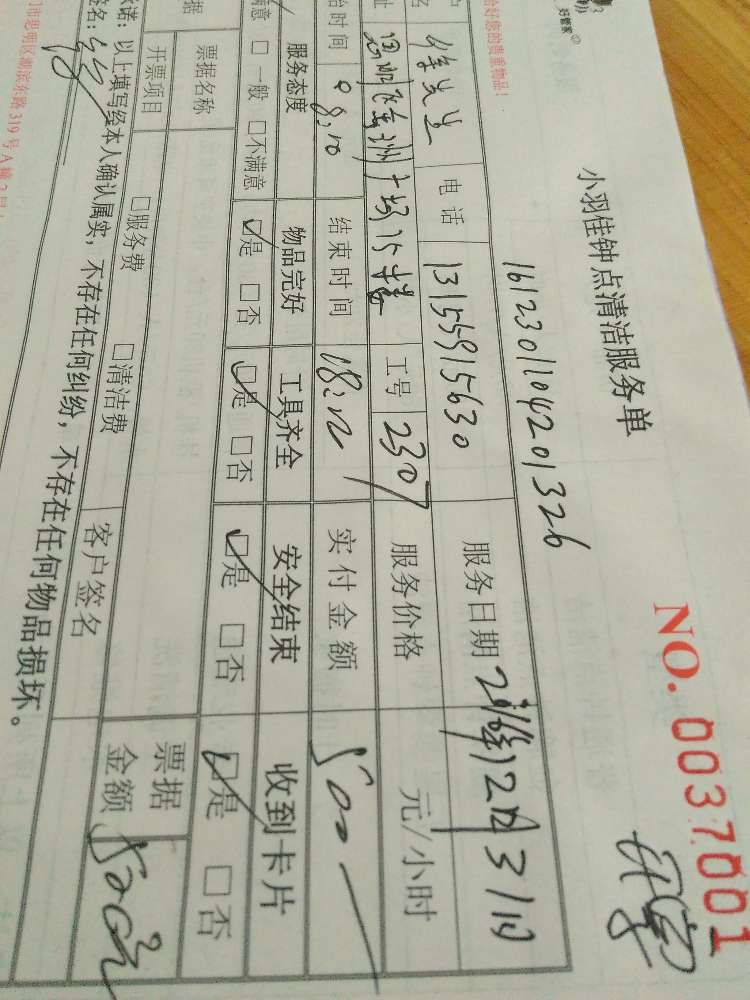 好管家
小羽佳钟点清洁服务单
NO. 0037001
1612301104201326
徐先生 电话 13155915630 服务日期 2016年12月31日
金洲广场 15楼 工号 2307 服务价格 元/小时
时间 08:10 结束时间 18:12 实付金额 500
服务态度 物品完好 工具齐全 安全结束 收到卡片
满意 □一般 □不满意 ☑是 □否 ☑是 □否 ☑是 □否 ☑是 □否
据 票据名称 开票项目 □服务费 □清洁费 票据金额 500元
承诺：以上填写经本人确认属实，不存在任何纠纷，不存在任何物品损坏。
签名： 客户签名
市思明区湖滨东路319号A幢2层
给好您的贵重物品！